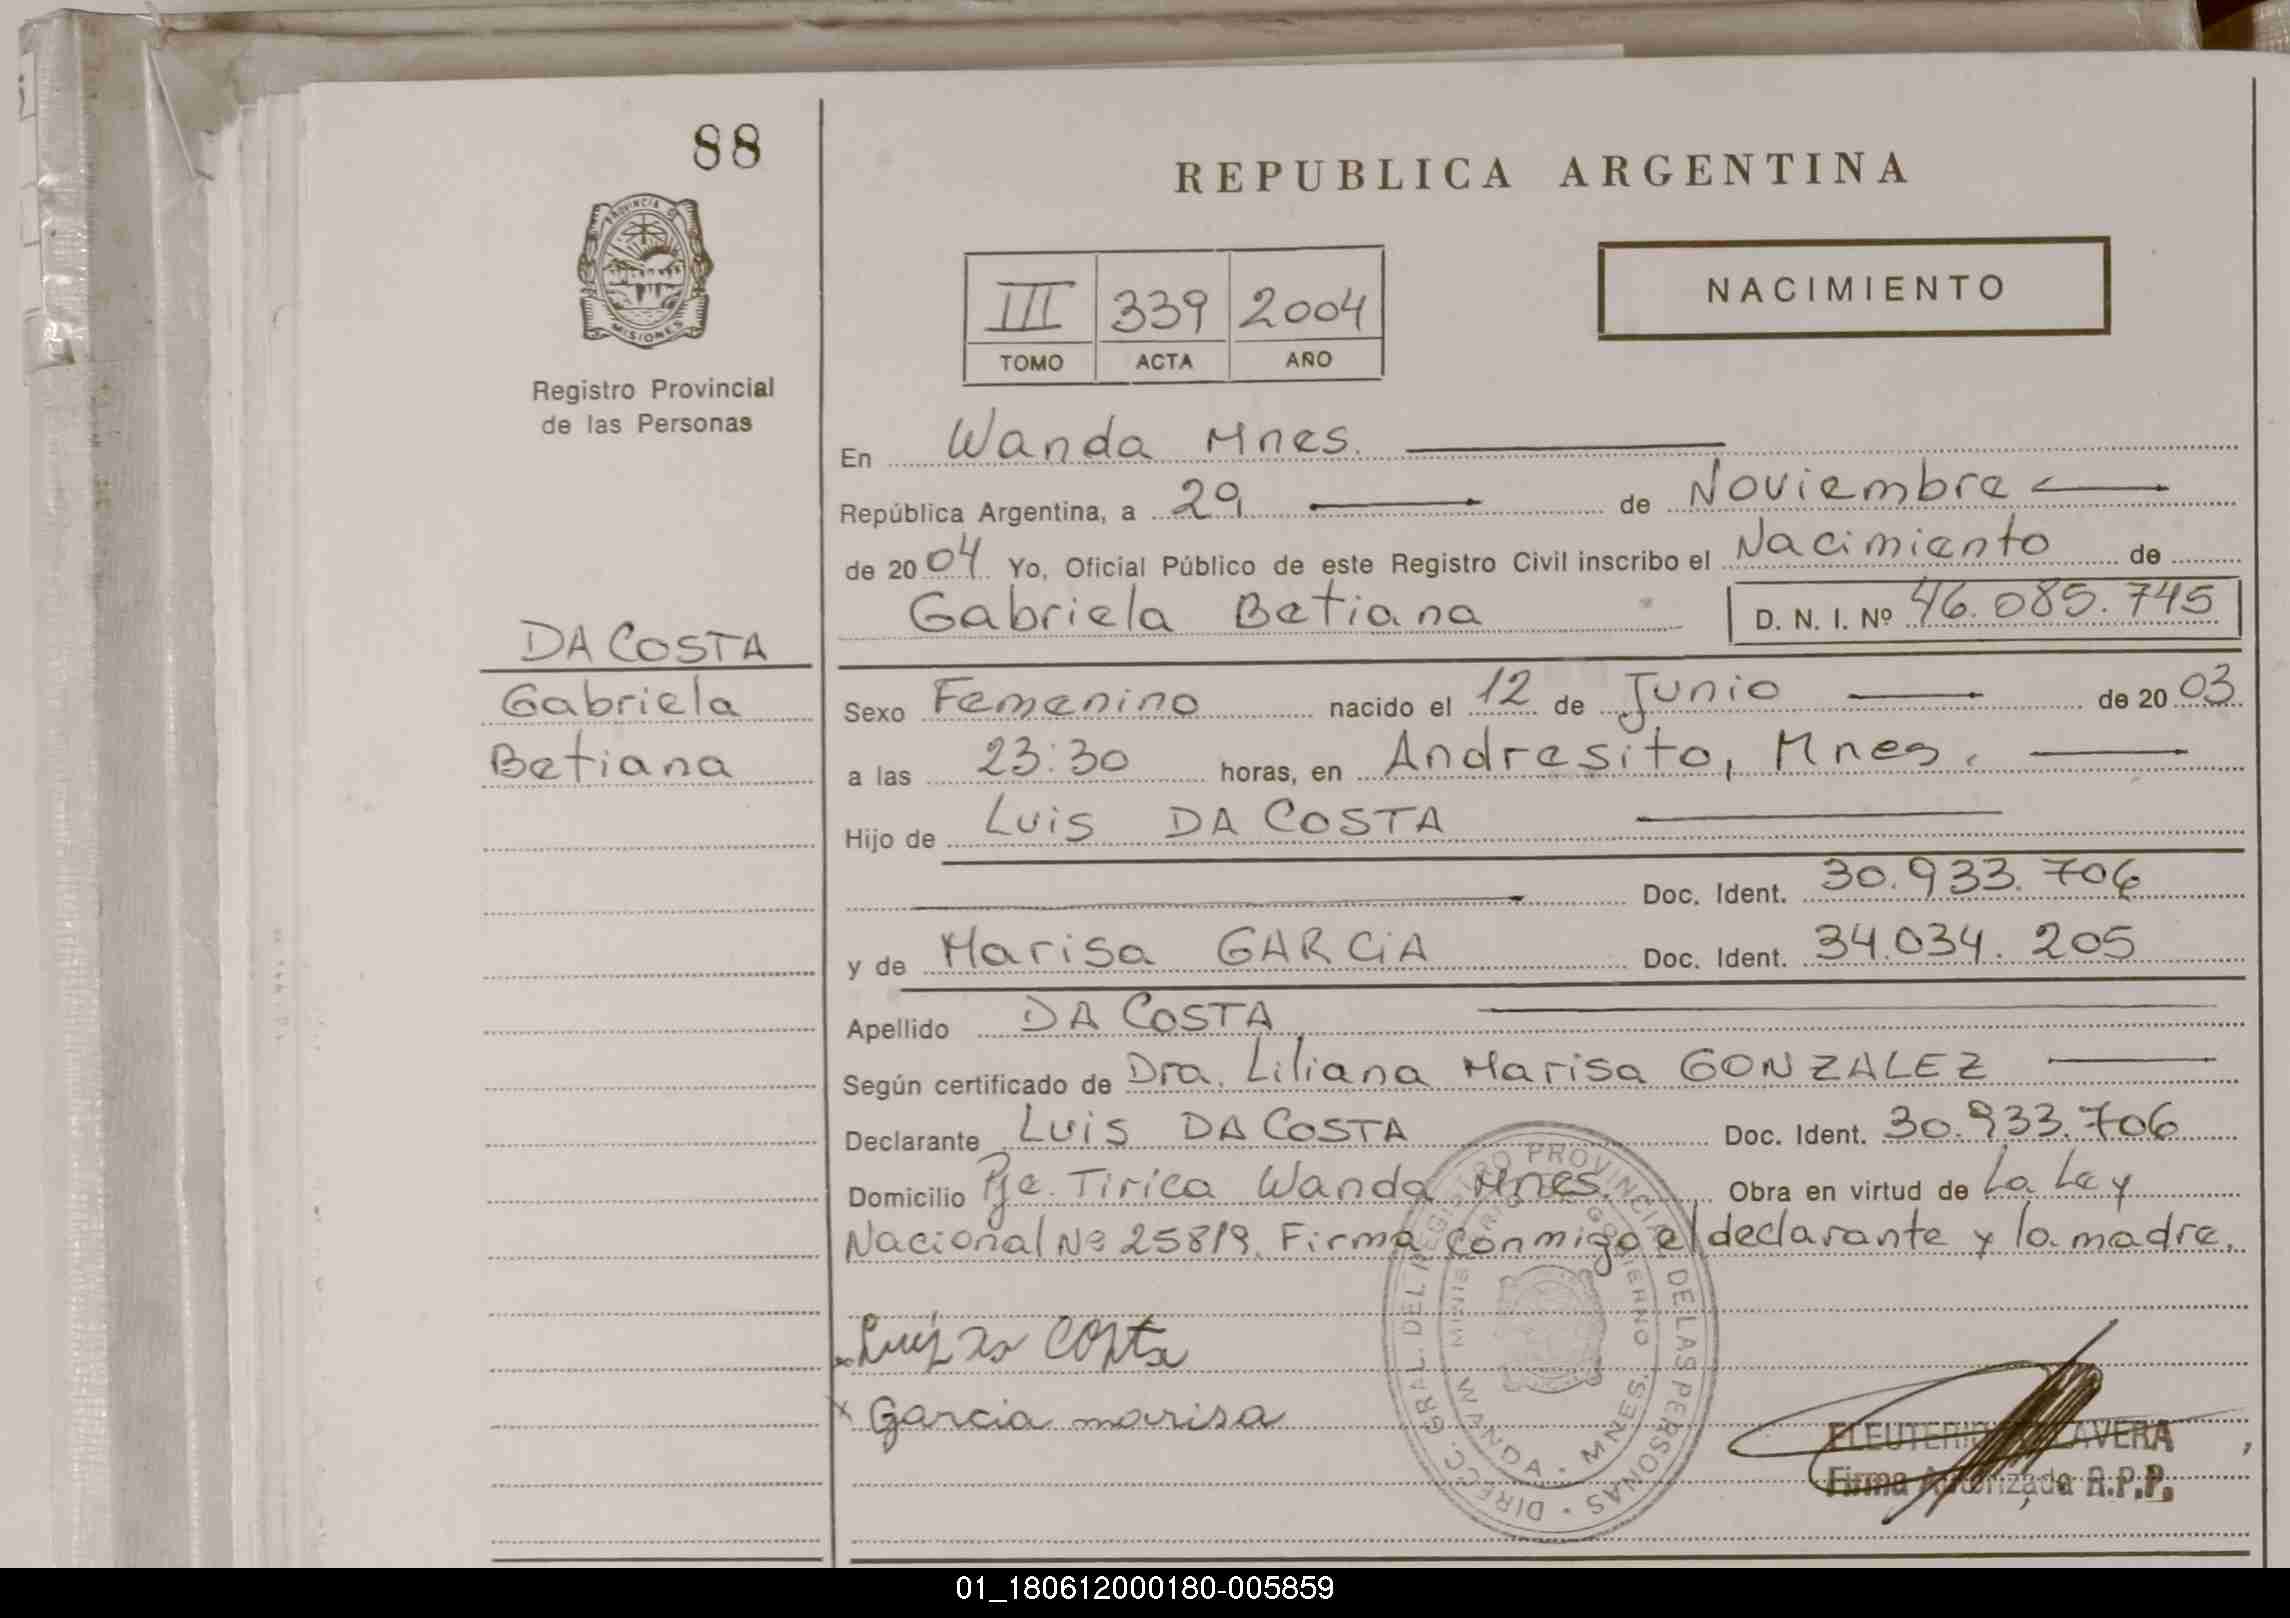 88
PROVINCIA DE
MISIONES
Registro Provincial
de las Personas
REPUBLICA ARGENTINA
III 339 2004
TOMO ACTA AÑO
NACIMIENTO
En Wanda Mnes.
República Argentina, a 29 de Noviembre
de 2004 Yo, Oficial Público de este Registro Civil inscribo el Nacimiento de
Gabriela Betiana D. N. I. Nº 46.085.745
DA COSTA
Gabriela
Betiana
Sexo Femenino nacido el 12 de Junio de 2003
a las 23:30 horas, en Andresito, Mnes.
Hijo de Luis DA COSTA
Doc. Ident. 30.933.706
y de Marisa GARCIA Doc. Ident. 34.034.205
Apellido DA COSTA
Según certificado de Dra. Liliana Marisa GONZALEZ
Declarante Luis DA COSTA Doc. Ident. 30.933.706
Domicilio Pje. Tirica Wanda Mnes. Obra en virtud de La Ley
Nacional Nº 25819. Firma conmigo el declarante y la madre.
Luis Da Costa
x Garcia marisa
DIRECC. GRAL. DEL REGISTRO PROVINCIAL DE LAS PERSONAS
MINISTERIO DE GOBIERNO
WANDA - MNES.
ELEUTERIO AVERA
Firma Autorizada R.P.P.
01_180612000180-005859